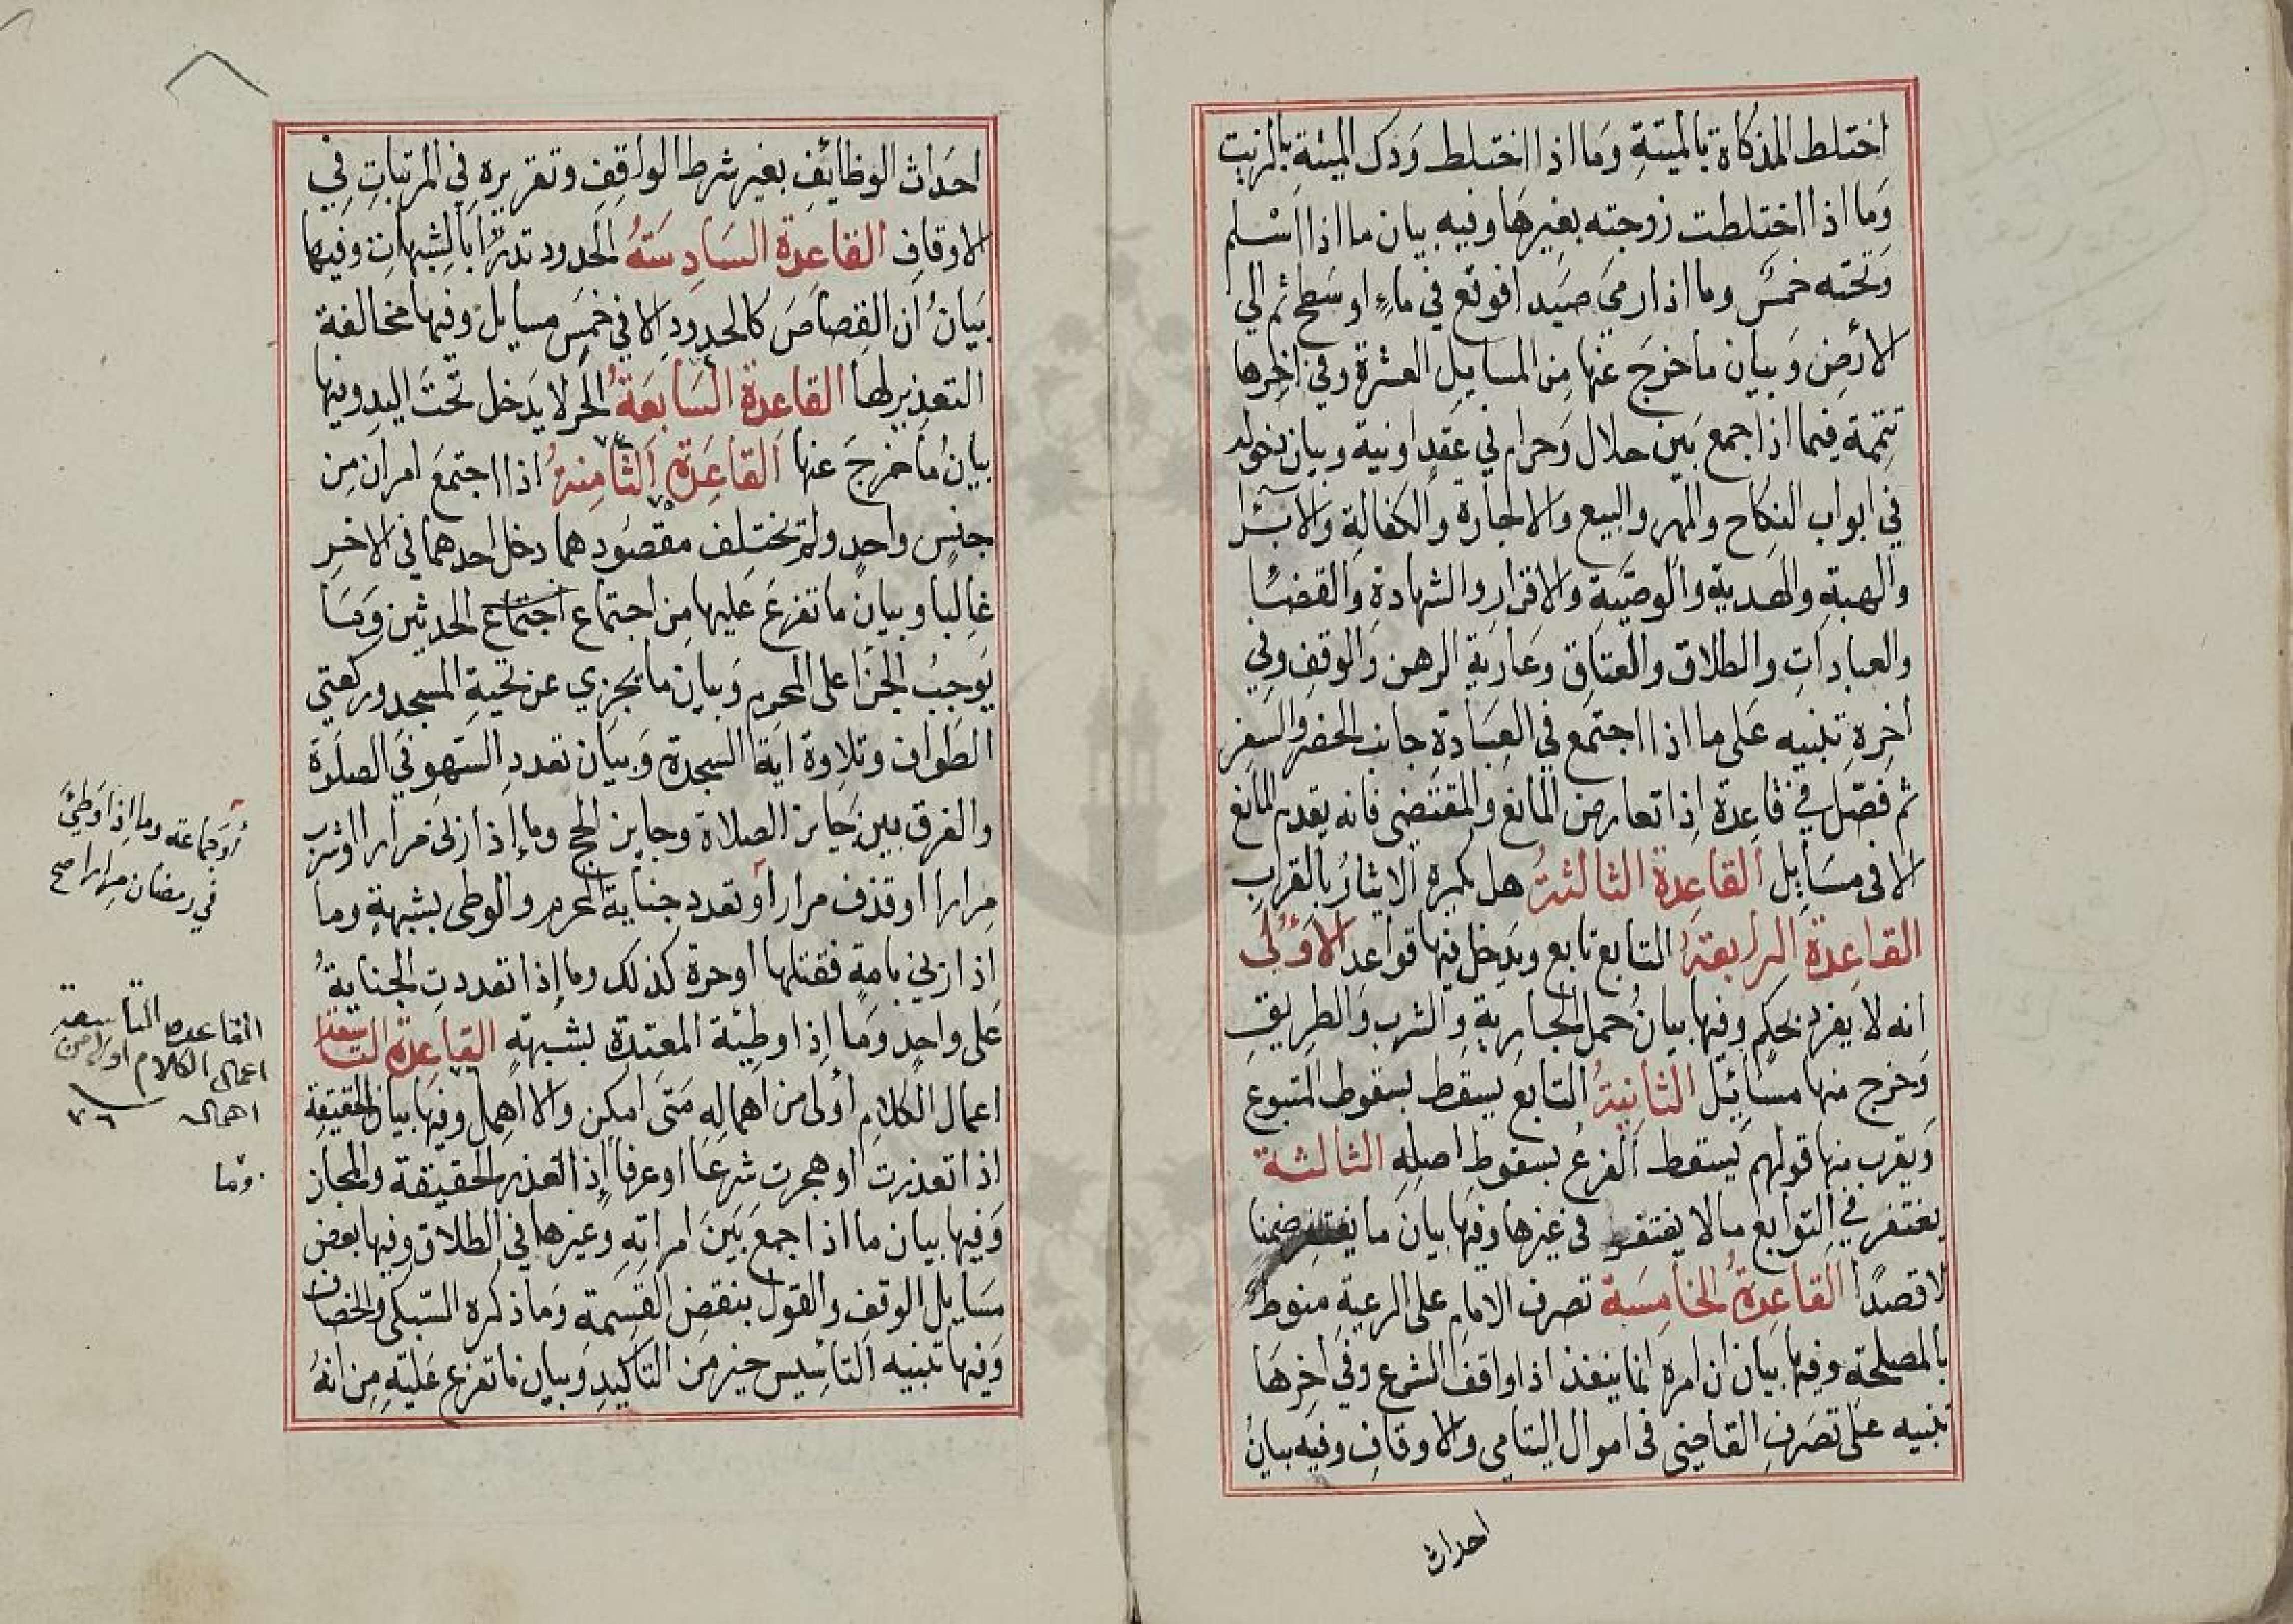 اختلط المذكاة بالميتة وما اذا اختلط وذك الميتة بالزيت
وما اذا اختلطت زوجته بغيرها وفيه بيان ما اذا اسلم
وتحته خمس وما اذا رمي صيدا فوقع في ماء او سطح ثم الي
الارض وبيان ما خرج عنها من المسايل العشرة وفي اخرها
تتمة فيما اذا جمع بين حلال وحرام في عقد او نية وبيان
في ابواب النكاح والمهر والبيع والاجارة والكفالة والابرا
والهبة والهدية والوصية والاقرار والشهادة والقضا
والعبادات والطلاق والعتاق وعارية الرهن والوقف وفي
اخره تنبيه على ما اذا اجتمع في العبادة جانب الحضر والسفر
ثم فصل في قاعدة اذا تعارض المانع والمقتضى فانه يقدم المانع
الا فى مسايل القاعدة الثالثة هل يكره الايثار بالقرب
القاعدة الرابعة التابع تابع ويدخل فيها قواعد الاولى
انه لا يفرد بحكم وفيها بيان حمل الجارية والشرب والطريق
وخرج منها مسائيل الثانية التابع يسقط بسقوط المتبوع
ويقرب منها قولهم يسقط الفرع بسقوط اصله الثالثة
يغتفر في التوابع ما لا يغتفر فى غيرها وفيها بيان ما يغتفر ضمنا
لا قصدا القاعدة الخامسة تصرف الامام على الرعية منوط
بالمصلحة وفيها بيان ان امره انما ينفذ اذا وافق الشرع وفي اخرها
تنبيه على تصرف القاضي فى اموال اليتامي والاوقاف وفيه بيان
احداث
احداث الوظائف بغير شرط الواقف وتقريره في المرتبات في
الاوقاف القاعدة السادسة الحدود تدرأ بالشبهات وفيها
بيان ان القصاص كالحدود الا في خمس مسايل وفيها مخالفة
التعذير لها القاعدة السابعة الحر لا يدخل تحت اليد وفيها
بيان ما خرج عنها القاعدة الثامنة اذا اجتمع امران من
جنس واحد ولم يختلف مقصودهما دخل احدهما في الاخر
غالبا وبيان ما تفرع عليها من اجتماع اجتماع الحدثين وما
يوجب الجزا على المحرم وبيان ما يجزي عن تحية المسجد وركعتي
الطواف وتلاوة اية السجدة وبيان تعدد السهو في الصلوة
والفرق بين جابر الصلاة وجابر الحج وما إذا زنى مرارا او شرب
مرارا او قذف مرارا او تعدد جناية المحرم والوطى بشبهة وما
اذا زني بامة فقتلها او حرة كذلك وما إذا تعددت الجناية
على واحد وما إذا وطئة المعتدة بشبهة القاعدة التاسعة
اعمال الكلام أولى من اهماله متى امكن والا اهمل وفيها بيان الحقيقة
اذا تعذرت او هجرت شرعا او عرفا إذا تعذر الحقيقة والمجاز
وفيها بيان ما اذا جمع بين امراته وغيرها في الطلاق وفيها بعض
مسايل الوقف والقول بنقض القسمة وما ذكره السبكى والخصاف
وفيها تنبيه التاسيس خير من التاكيد وبيان ما تفرع عليه من انه
أو جماعة وما إذا وطئ
في رمضان مرارا صح
القاعدة التاسعة
اعمال الكلام اولا من
اهماله ٧٦
وما